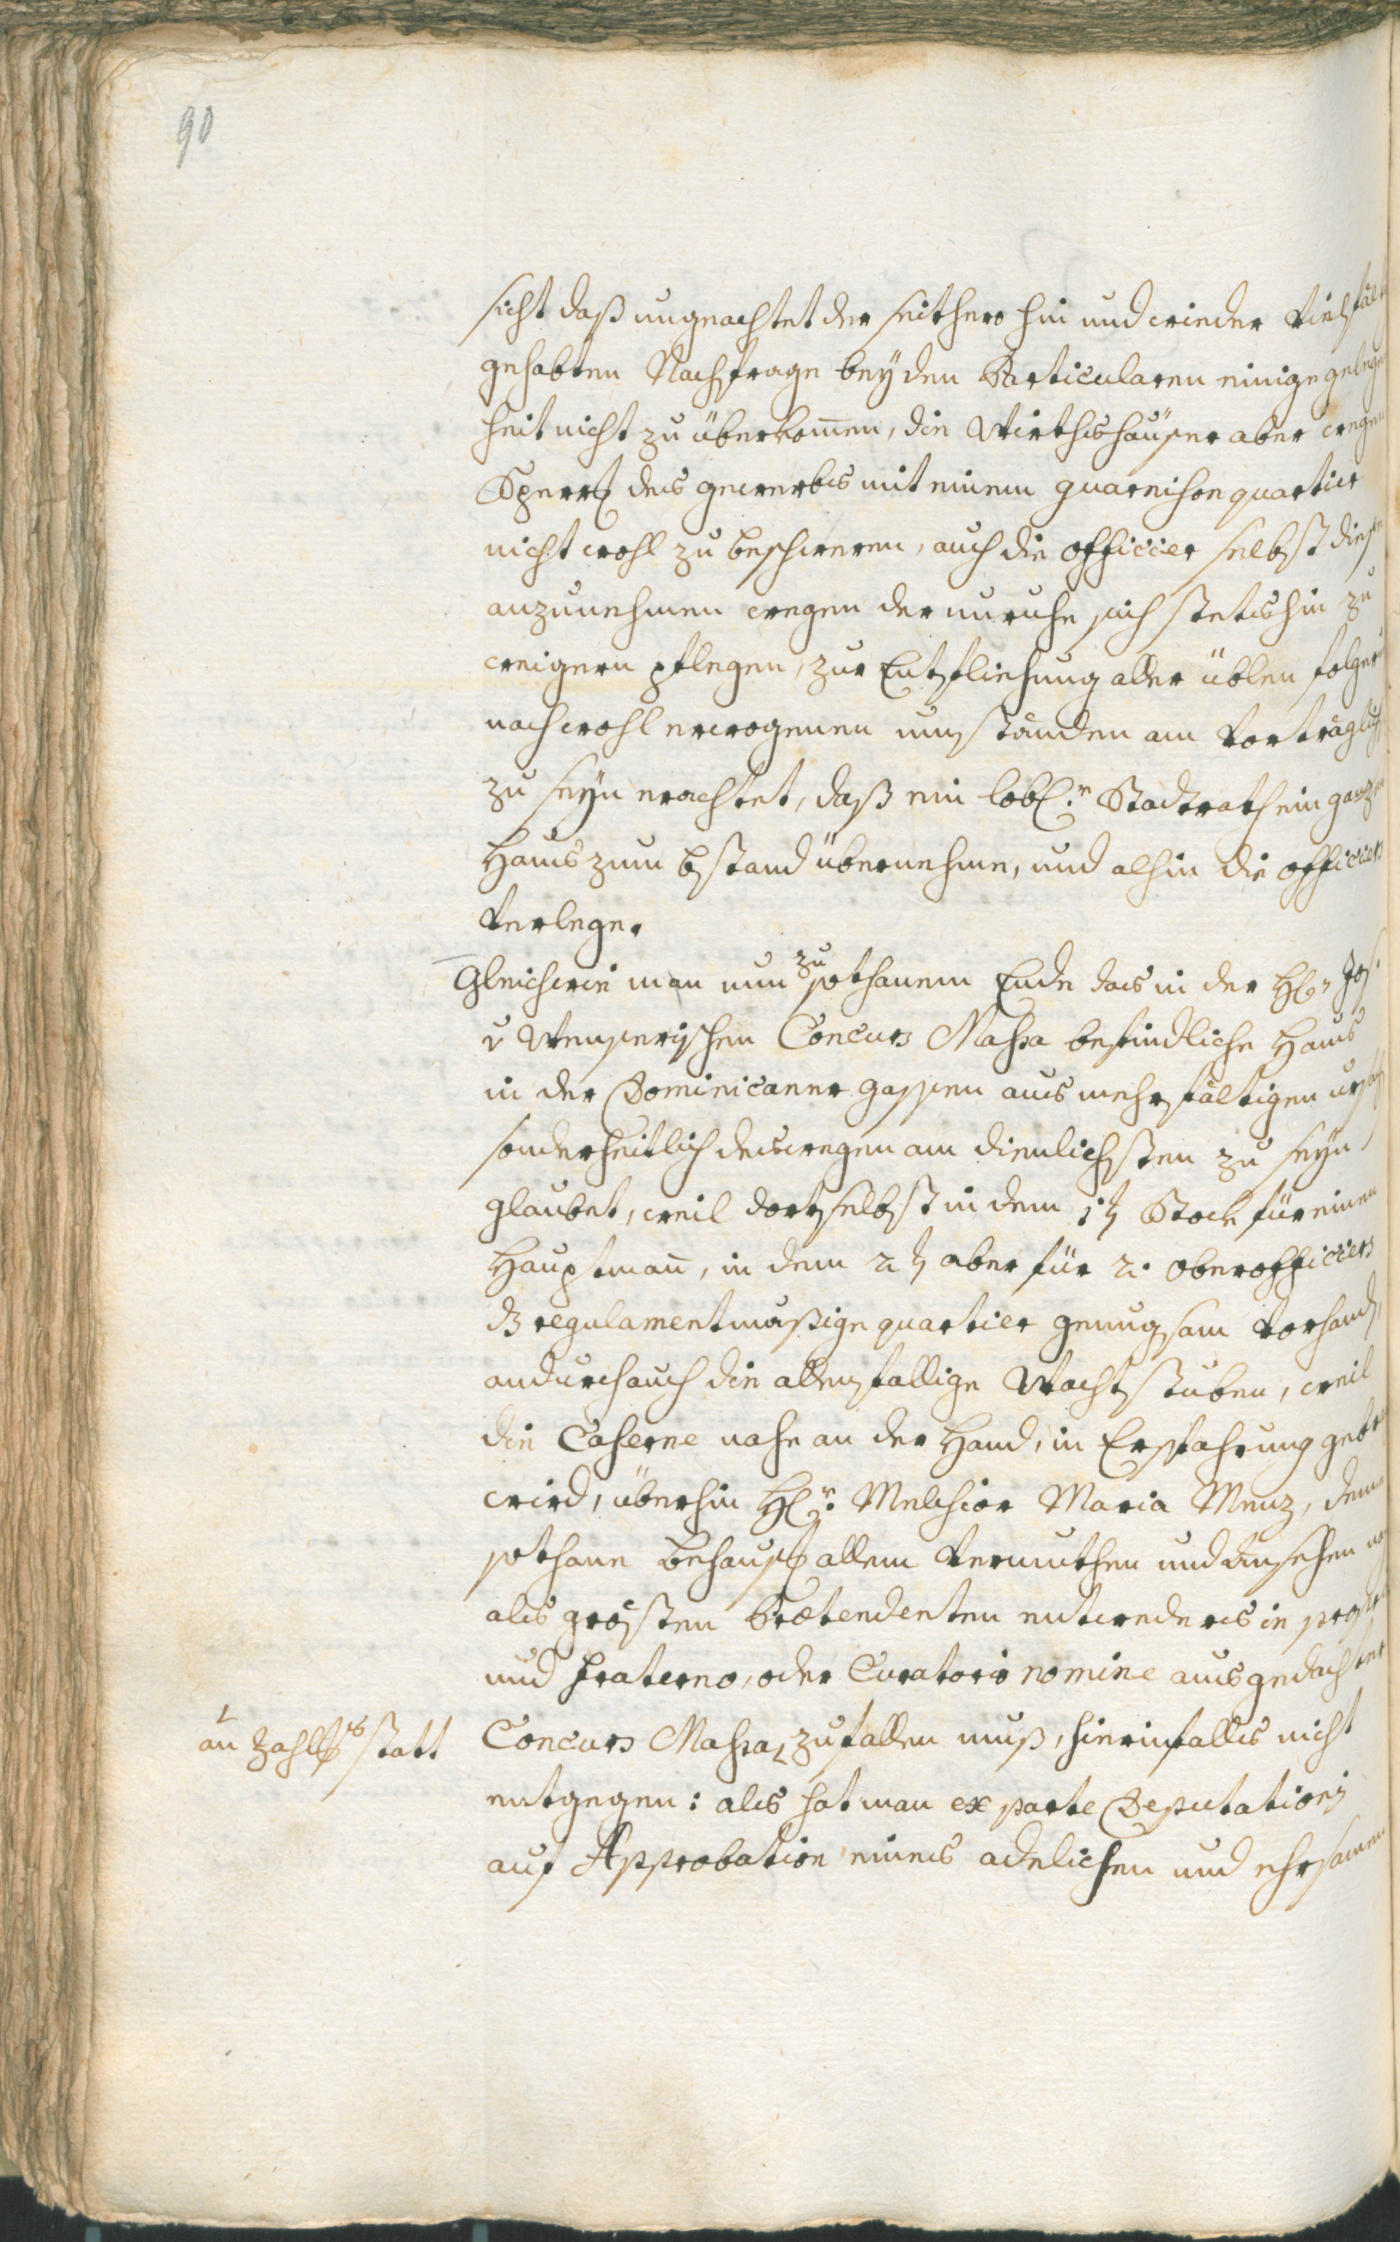 90
sicht daß ungeachtet der seithero hin und wieder vielfält
gehabten Nachfrage bey den Particularen einige gelegen
heit nicht zu überkom̄en, die Wirthshäuser aber wegen
Sperrg des gewerbs mit einem guarnison quartier
nicht wohl zu beschweren, auch die officier selbst diese
anzunehmen wegen der unruhe sich stetshin zu
weigern pflegen, zur Entfliehung aller üblen folger
nach wohl erwogenen umständen am vorträglich
zu seyn erachtet, daß ein lobl:r Stadtrath ein ganzes
Haus zum bstand übernehme, und alhin die officiers
verlege.
Gleichwie man nun zu sothanem Ende das in der H: Jos:
v Wenserischen Concurs Massa befindliche Haus
in der Dominicaner gassen aus mehrfältigen ursach
sonderheitlich deswegen am dienlichsten zu seyn
glaubet, weil dortselbst in dem 1t Stock für einen
Hauptman̄, in dem 2t aber für 2. oberofficiers
dz regulamentmäßige quartier genugsam vorhand,
andurch auch die allenfallige Wachtstuben, weil
die Caserne nahe an der Hand, in Ersparung gebr
wird, überhin H:r Melchior Maria Menz, deme
sothane behausg allem vermuthen und Ansehen na
als grösten Prætendenten entweders in propr
und fraterno, oder Curatorio nomine aus gedachter
an Zahlgs statt
Concurs Massa zufallen muß, hierinfalls nicht
entgegen: als hat man ex parte Deputationis
auf Approbation eines adelichen und ehrsamen